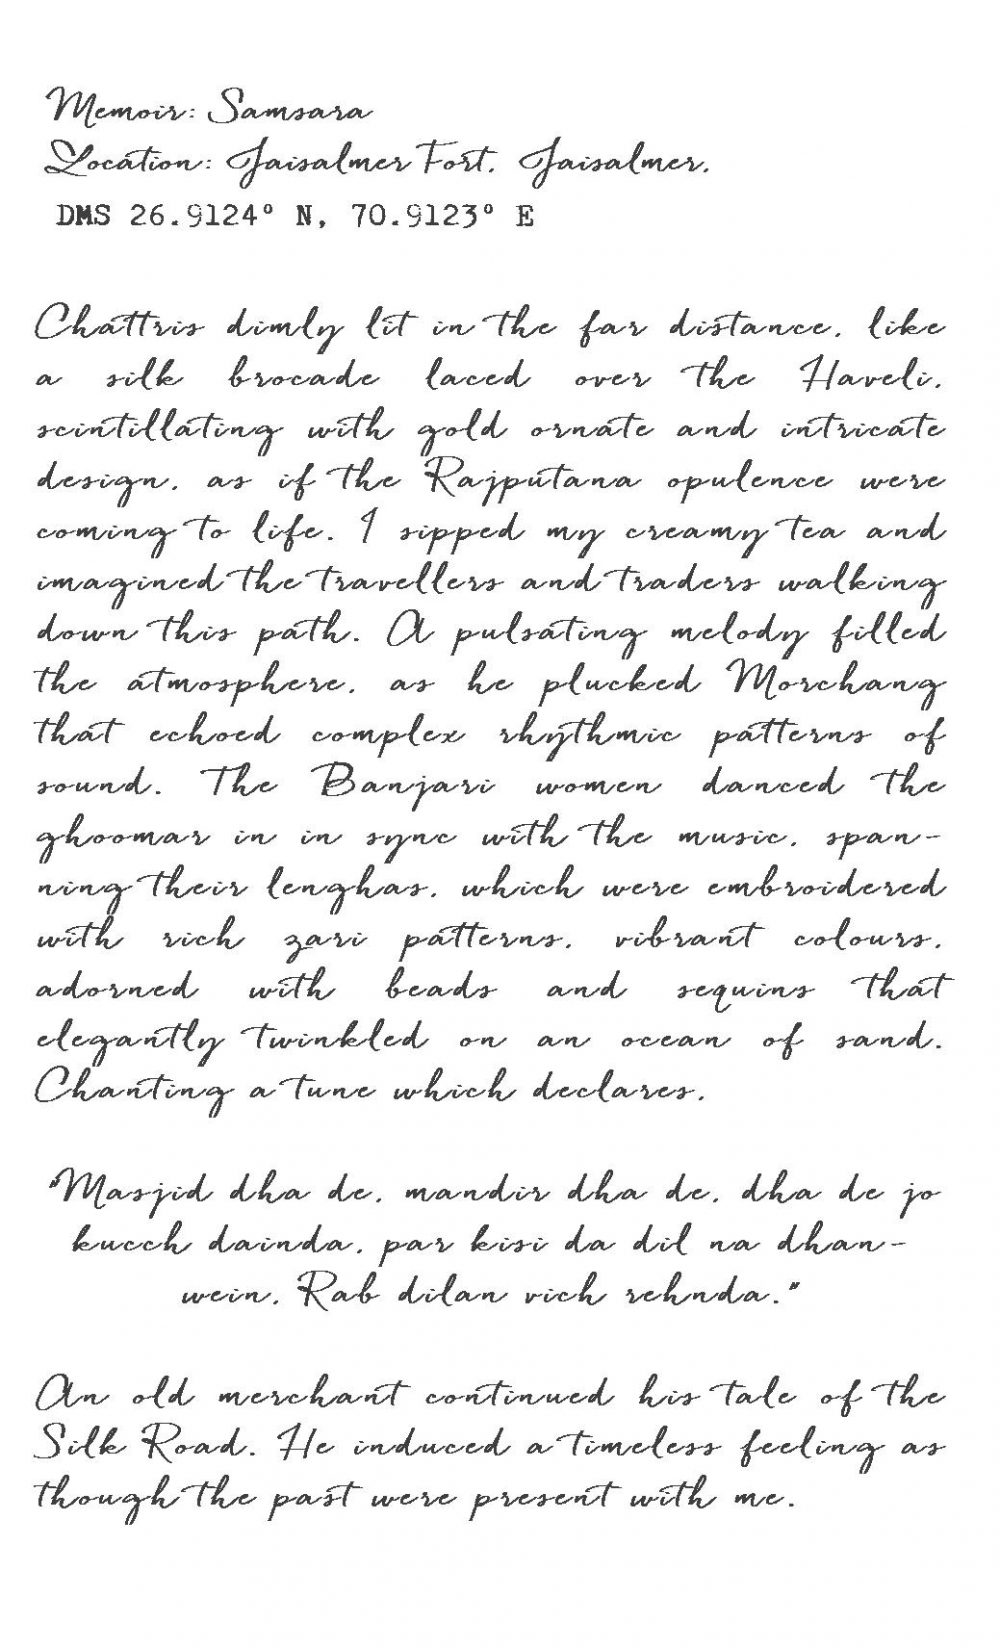 Memoir: Samsara
Location: Jaisalmer Fort, Jaisalmer,
DMS 26.9124° N, 70.9123° E
Chattris dimly lit in the far distance, like
a silk brocade laced over the Haveli,
scintillating with gold ornate and intricate
design, as if the Rajputana opulence were
coming to life. I sipped my creamy tea and
imagined the travellers and traders walking
down this path. A pulsating melody filled
the atmosphere, as he plucked Morchang
that echoed complex rhythmic patterns of
sound. The Banjari women danced the
ghoomar in in sync with the music, span-
ning their lenghas, which were embroidered
with rich zari patterns, vibrant colours,
adorned with beads and sequins that
elegantly twinkled on an ocean of sand.
Chanting a tune which declares,
"Masjid dha de, mandir dha de, dha de jo
kucch dainda, par kisi da dil na dhan-
wein, Rab dilan vich rehnda."
An old merchant continued his tale of the
Silk Road. He induced a timeless feeling as
though the past were present with me.